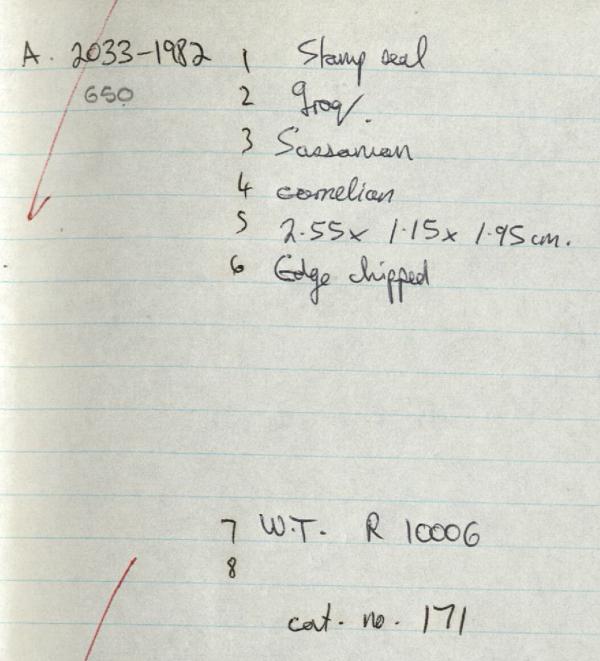 A. 2033-1982 1 Stamp seal
650 2 Iraq.
3 Sassanian
4 cornelian
5 2.55x 1.15x 1.95cm.
6 Edge chipped
7 W.T. R 10006
8
cat. no. 171